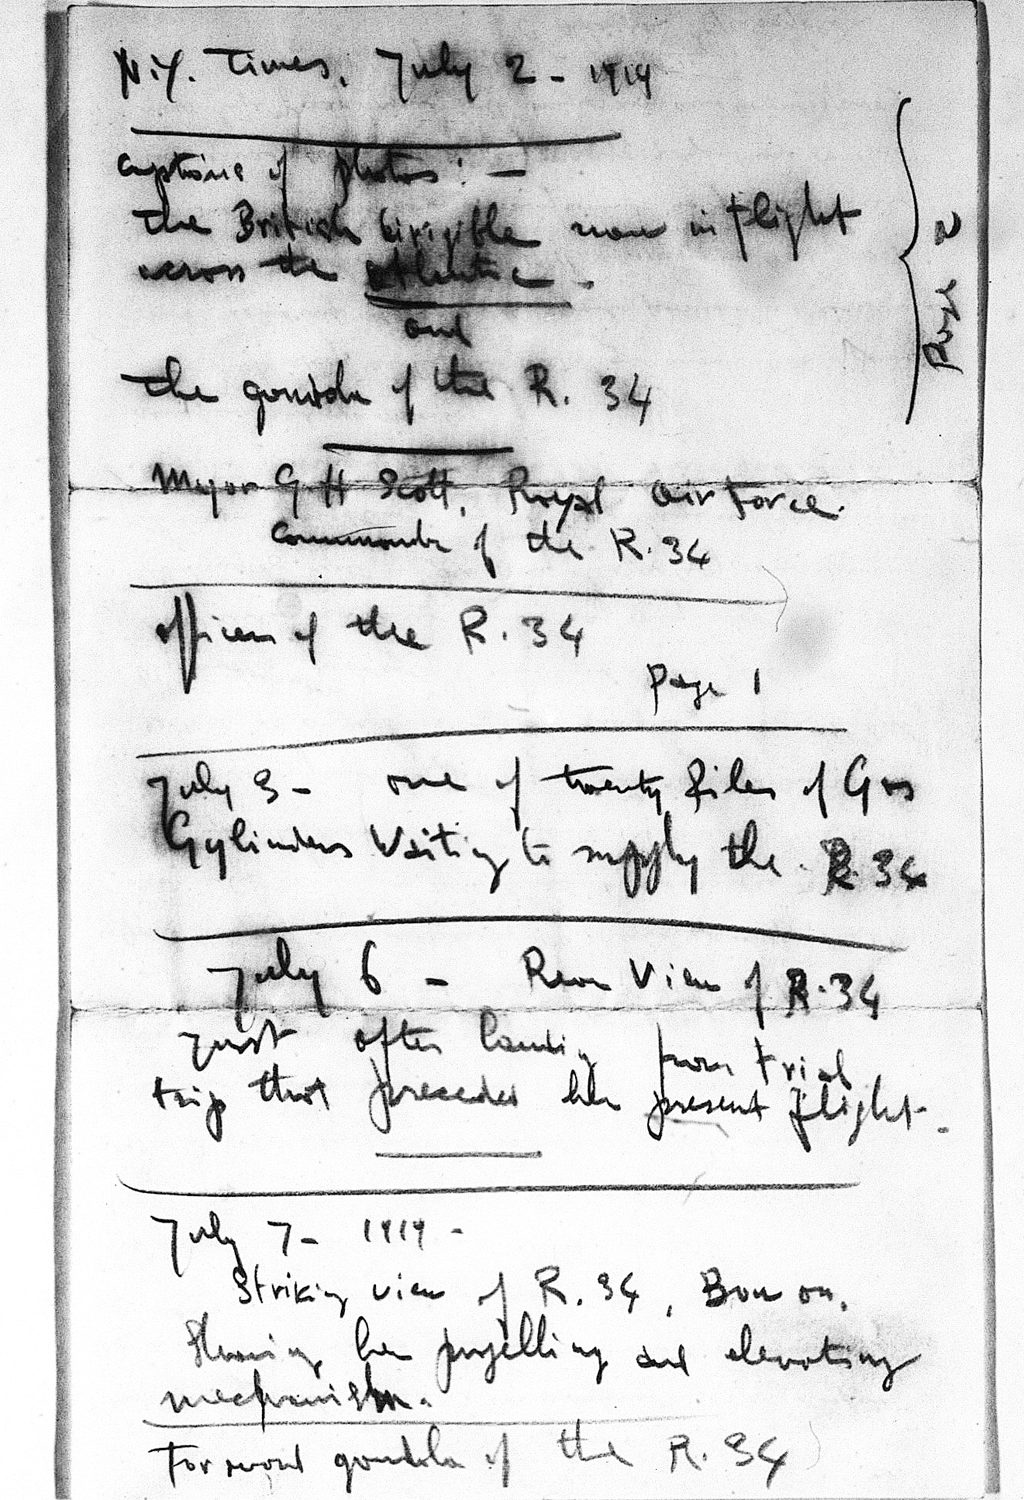 N.Y. Times, July 2 - 1919
Captions of photos: -
the British Dirigible now in flight
across the Atlantic -
and
the gondola of the R. 34
Page 2
Major G H Scott, Royal Air Force.
Commander of the R. 34
officers of the R. 34
Page 1
July 3 - one of twenty files of Gas
Cylinders Waiting to supply the R. 34
July 6 - Rear View of R. 34
just after landing from trial
trip that preceded her present flight -
July 7 - 1919 -
Striking view of R. 34, Bow on,
Showing her propelling and elevating
mechanism.
Forward gondola of the R. 34